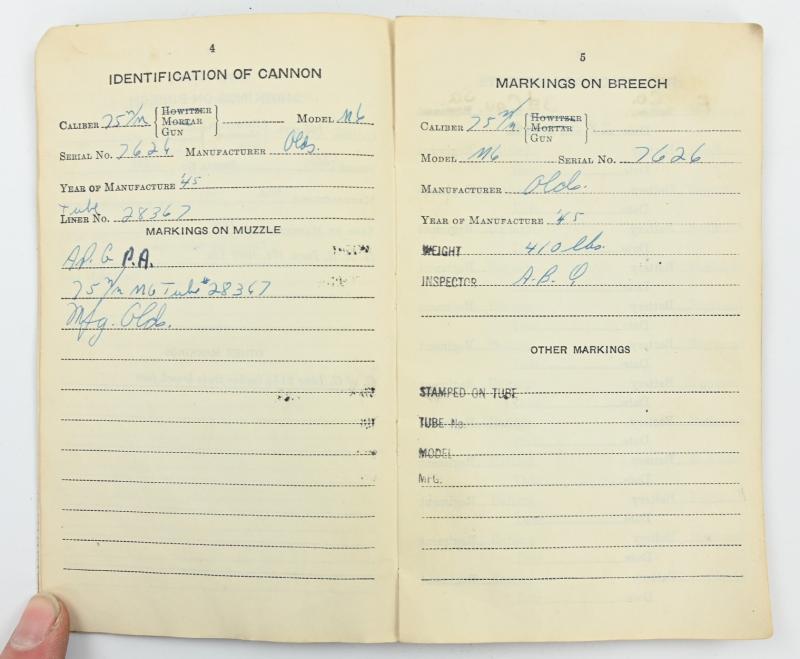 4
IDENTIFICATION OF CANNON
CALIBER 75 m/m { HOWITZER MORTAR GUN } MODEL M6
SERIAL NO. 7626 MANUFACTURER Olds.
YEAR OF MANUFACTURE '45
Tube
LINER NO. 28367
MARKINGS ON MUZZLE
P.A.
75 m/m M6 Tube # 28367
Mfg. Olds.
5
MARKINGS ON BREECH
CALIBER 75 m/m { HOWITZER MORTAR GUN }
MODEL M6 SERIAL NO. 7626
MANUFACTURER Olds.
YEAR OF MANUFACTURE '45
WEIGHT 410 lbs.
INSPECTOR A.B.Q
OTHER MARKINGS
STAMPED ON TUBE
TUBE No.
MODEL
MFG.